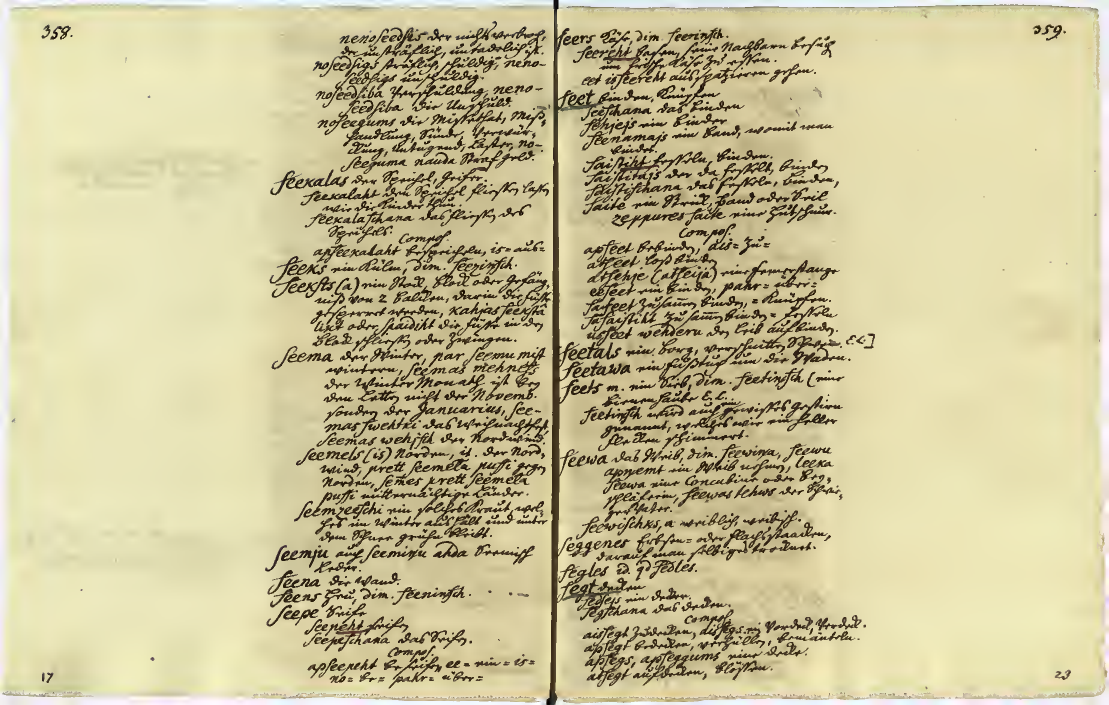 358.
nenoseedsis der nichts verbroch,
der unsträflich, untadelich ist.
noseedsigs sträflich, schuldig, neno-
seedsigs unschuldig.
noseedsiba Verschuldung, neno-
seedsiba die Unschuld
noseegums die Missethat, Miß,
handlung, Sünde, Verwür,
kung, Untugend, Laster, no-
seeguma nauda Strafgeld.
seekalas der Speichel, Geifer.
seekalaht den Speichel fließen laßen
wie die Kinder thun.
seekalaschana das fließen des
Speichels.
Compos.
apseekalaht bespeicheln, is= aus=
seeks ein, dim. seezinsch.
seeksts (a) ein Stock, Block oder Gefäng,
niß von 2 Balcken, darin die Füße
gesperret werden, kahjas seekstâ
likt oder spaidiht die Füße in den
Block schließen oder zwingen.
seema der Winter, par seemu mist
wintern, seemas mehness
der Winter Monath ist bey
den Letten nicht der Novemb.
sondern der Januarius, see-
mas swehtki das Weihnachtsfest,
seemas wehjsch der Nordwind.
seemels (is) Norden, it. der Nord,
wind, prett seemeļa pussi gegen
Norden, semes prett seemeļa
pussi mitternächtige Länder.
seemzeeschi ein solches Kraut, wel,
ches im Winter aushält und unter
dem Schnee grühn bleibt.
seemju auch seemiņu ahda Seemisch
Leder.
seena die Wand.
seens Heu, dim. seeninsch.
seepe Seife
seepeht seifen
seepeschana das Seifen.
Compos.
apseepeht beseifen, ee= ein= is=
no= be= pahr= über=
17
359.
seers Käse, dim. seerinsch.
seereht kasen, seine Nachbarn besuch
um frische Käse zu eßen.
eet isseereht ausspatzieren gehen.
seet binden, knüpfen
seeschana das Binden
sehjejs ein Binder
seenamajs ein Band, womit man
bindet.
saistiht feßeln, binden.
saistitajs der da feßelt, bindet
saistischana das feßeln, binden,
saite ein Strick, Band oder Seil
zeppures saite eine Hutschnur.
Compos.
apseet bebinden, ais= zu=
atseet loßbinden
atsehje (atseija) eine femerstange
eeseet einbinden, pahr= über=
saseet zusammbinden, = knüpfen.
sasaistiht zusammbinden= feßeln
usseet wehderu den Leib aufbinden.
seetals ein borg, verschnitten Schwein. E.L.]
seetawa ein Fußtuch um die Waden.
seets m. ein Sieb, dim. seetinsch (eine
bienenhaube E.L.
seetinsch wird auch ein gewißes Gestirn
genannt, welches wie ein heller
Flecken schimmert.
seewa das Weib, dim. seewina, seewu
apņemt ein Weib nehmen, leeka
seewa eine Concubine oder Bey,
schläferin, seewas tehws der Schwie,
gervater.
seewischks, a weiblich, weibisch.
seggenes Erbsen= oder flachsstaacken,
darauf man selbiges trocknet.
segles id. qd sedles.
segt decken
sedsejs ein decker.
segschana das decken.
Compos.
aissegt zudecken, aissegs ein Vordeck, Verdeck.
apsegt bedecken, verhüllen, bemänteln.
apsegs, apseggums eine decke.
atsegt aufdecken, blößen.
23